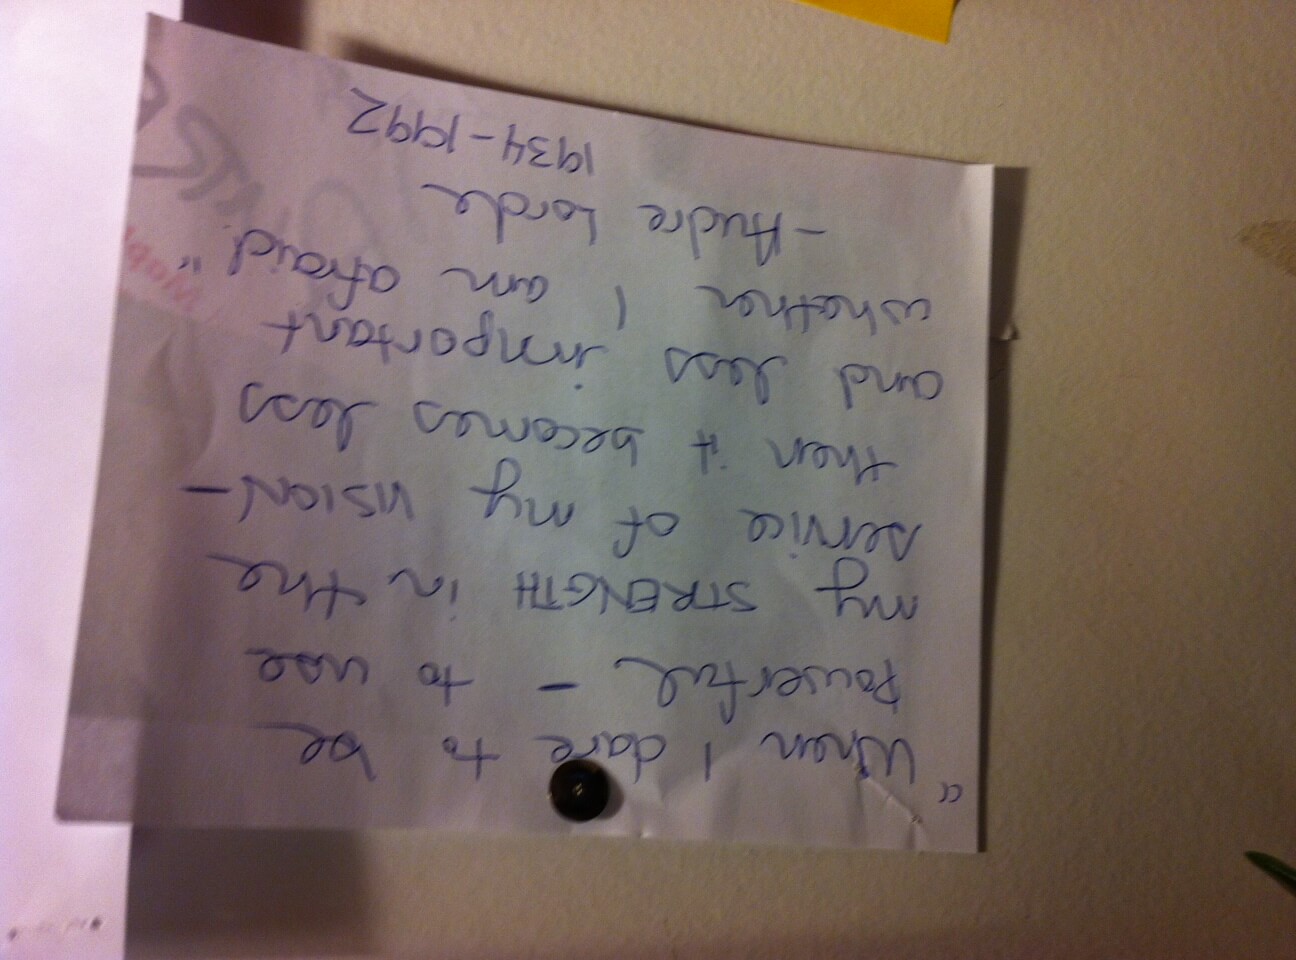 "When I dare to be
Powerful - to use
my STRENGTH in the
service of my VISION -
then it becomes less
and less important
whether I am afraid"
- Audre Lorde
1934-1992